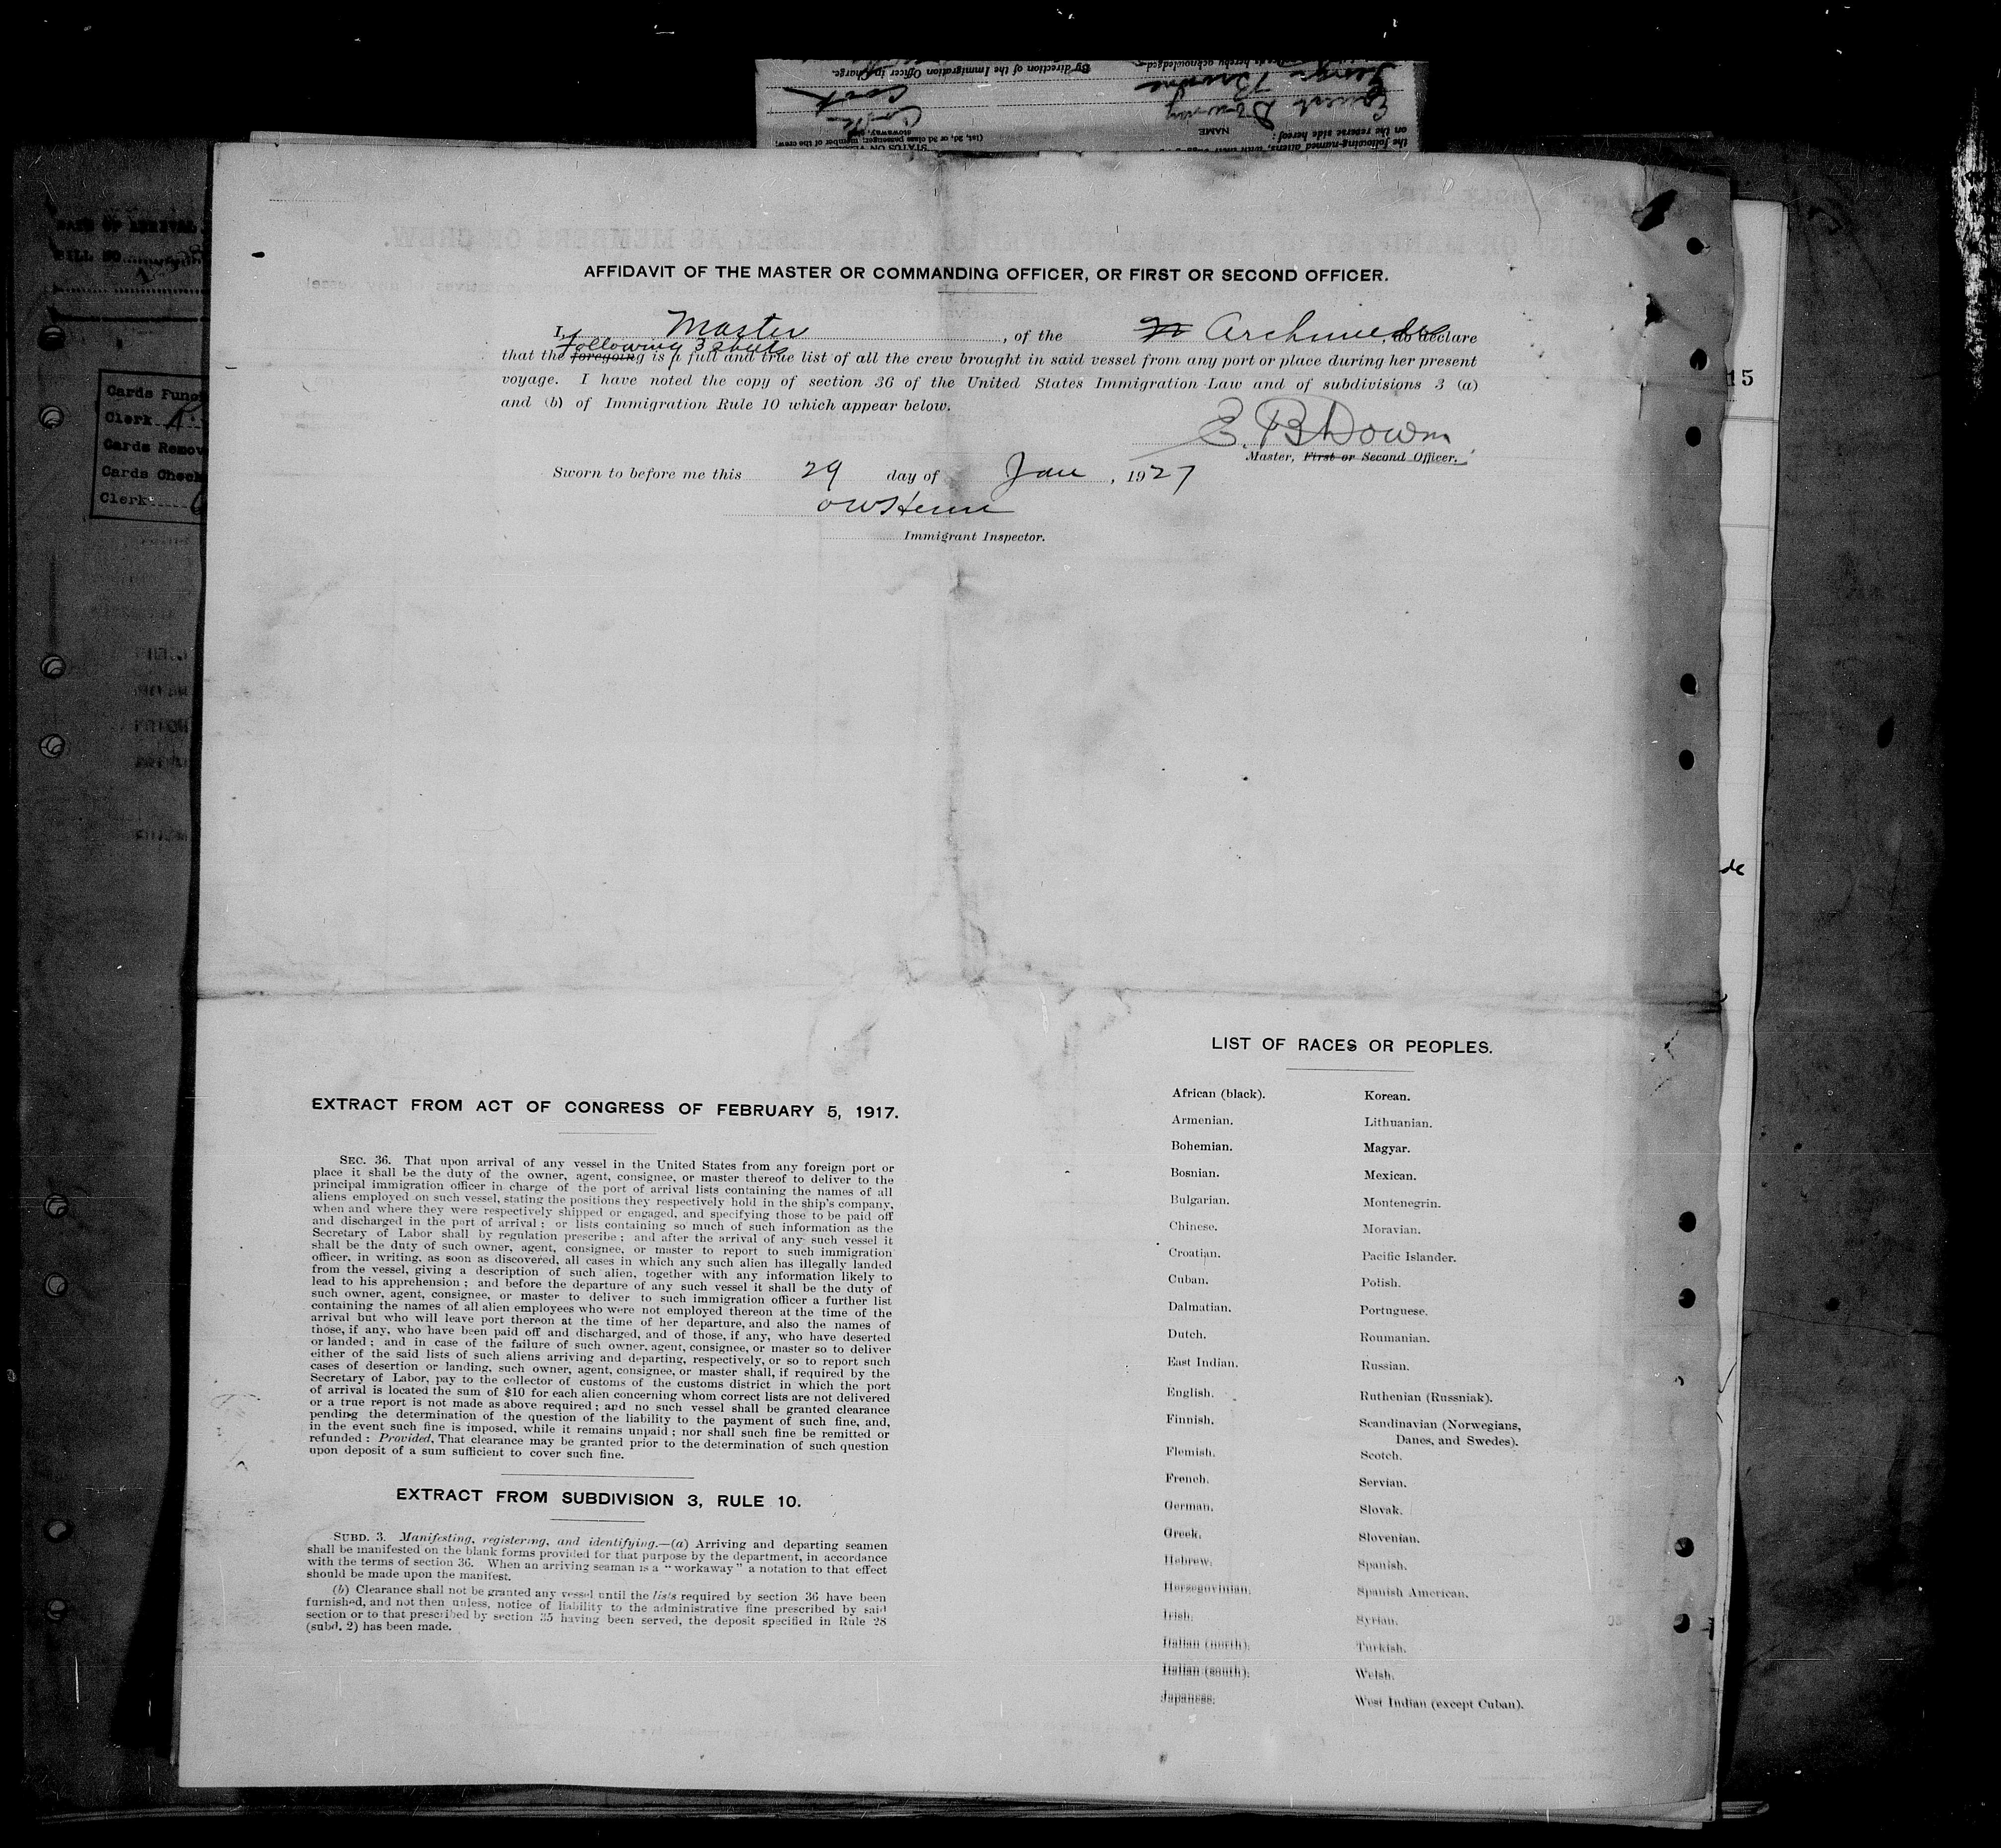 AFFIDAVIT OF THE MASTER OR COMMANDING OFFICER, OR FIRST OR SECOND OFFICER.
I, Master, of the Archimedes, do declare
following 3 sheets
that the foregoing is a full and true list of all the crew brought in said vessel from any port or place during her present
voyage. I have noted the copy of section 36 of the United States Immigration Law and of subdivisions 3 (a)
and (b) of Immigration Rule 10 which appear below.
Master, First or Second Officer.
Sworn to before me this 29 day of Jan, 1927
Immigrant Inspector.
EXTRACT FROM ACT OF CONGRESS OF FEBRUARY 5, 1917.
SEC. 36. That upon arrival of any vessel in the United States from any foreign port or
place it shall be the duty of the owner, agent, consignee, or master thereof to deliver to the
principal immigration officer in charge of the port of arrival lists containing the names of all
aliens employed on such vessel, stating the positions they respectively hold in the ship's company,
when and where they were respectively shipped or engaged, and specifying those to be paid off
and discharged in the port of arrival; or lists containing so much of such information as the
Secretary of Labor shall by regulation prescribe; and after the arrival of any such vessel it
shall be the duty of such owner, agent, consignee, or master to report to such immigration
officer, in writing, as soon as discovered, all cases in which any such alien has illegally landed
from the vessel, giving a description of such alien, together with any information likely to
lead to his apprehension; and before the departure of any such vessel it shall be the duty of
such owner, agent, consignee, or master to deliver to such immigration officer a further list
containing the names of all alien employees who were not employed thereon at the time of the
arrival but who will leave port thereon at the time of her departure, and also the names of
those, if any, who have been paid off and discharged, and of those, if any, who have deserted
or landed; and in case of the failure of such owner, agent, consignee, or master so to deliver
either of the said lists of such aliens arriving and departing, respectively, or so to report such
cases of desertion or landing, such owner, agent, consignee, or master shall, if required by the
Secretary of Labor, pay to the collector of customs of the customs district in which the port
of arrival is located the sum of $10 for each alien concerning whom correct lists are not delivered
or a true report is not made as above required; and no such vessel shall be granted clearance
pending the determination of the question of the liability to the payment of such fine, and,
in the event such fine is imposed, while it remains unpaid; nor shall such fine be remitted or
refunded: Provided, That clearance may be granted prior to the determination of such question
upon deposit of a sum sufficient to cover such fine.
EXTRACT FROM SUBDIVISION 3, RULE 10.
SUBD. 3. Manifesting, registering, and identifying.—(a) Arriving and departing seamen
shall be manifested on the blank forms provided for that purpose by the department, in accordance
with the terms of section 36. When an arriving seaman is a "workaway" a notation to that effect
should be made upon the manifest.
(b) Clearance shall not be granted any vessel until the lists required by section 36 have been
furnished, and not then unless, notice of liability to the administrative fine prescribed by said
section or to that prescribed by section 35 having been served, the deposit specified in Rule 28
(subd. 2) has been made.
LIST OF RACES OR PEOPLES.
African (black).
Armenian.
Bohemian.
Bosnian.
Bulgarian.
Chinese.
Croatian.
Cuban.
Dalmatian.
Dutch.
East Indian.
English.
Finnish.
Flemish.
French.
German.
Greek.
Hebrew.
Herzegovinian.
Irish.
Italian (north).
Italian (south).
Japanese.
Korean.
Lithuanian.
Magyar.
Mexican.
Montenegrin.
Moravian.
Pacific Islander.
Polish.
Portuguese.
Roumanian.
Russian.
Ruthenian (Russniak).
Scandinavian (Norwegians,
Danes, and Swedes).
Scotch.
Servian.
Slovak.
Slovenian.
Spanish.
Spanish American.
Syrian.
Turkish.
Welsh.
West Indian (except Cuban).
Clerk
Clerk
15
By direction of the Immigration Officer in Charge.
NAME
on the reverse side hereof: